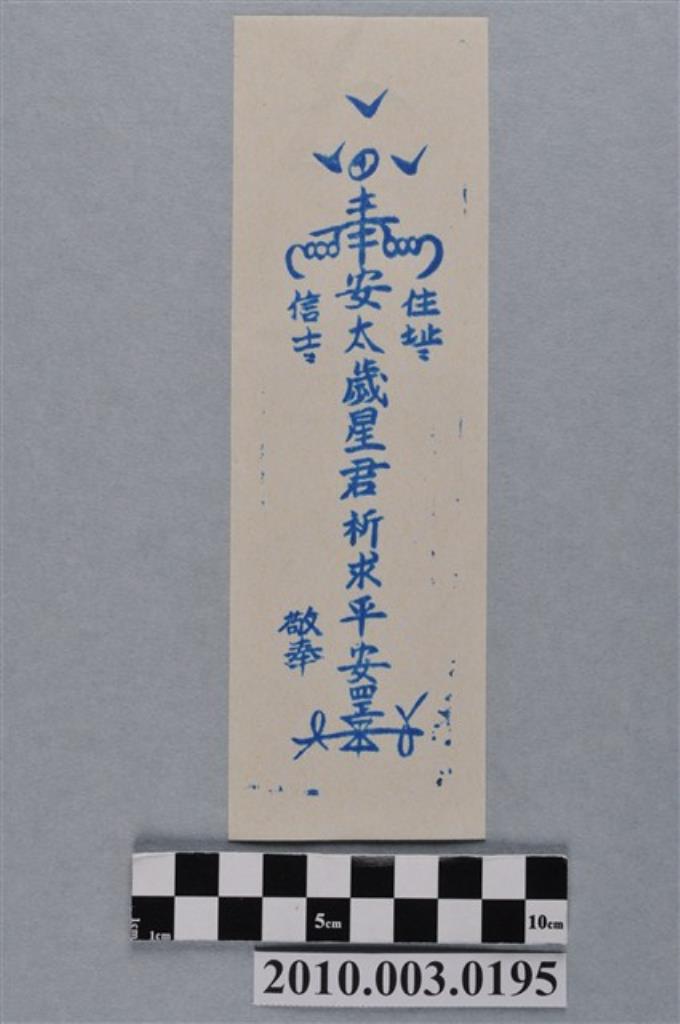 奉安太歲星君祈求平安罡
住址:
信士:
敬奉
5cm
10cm
1cm
1cm
2010.003.0195